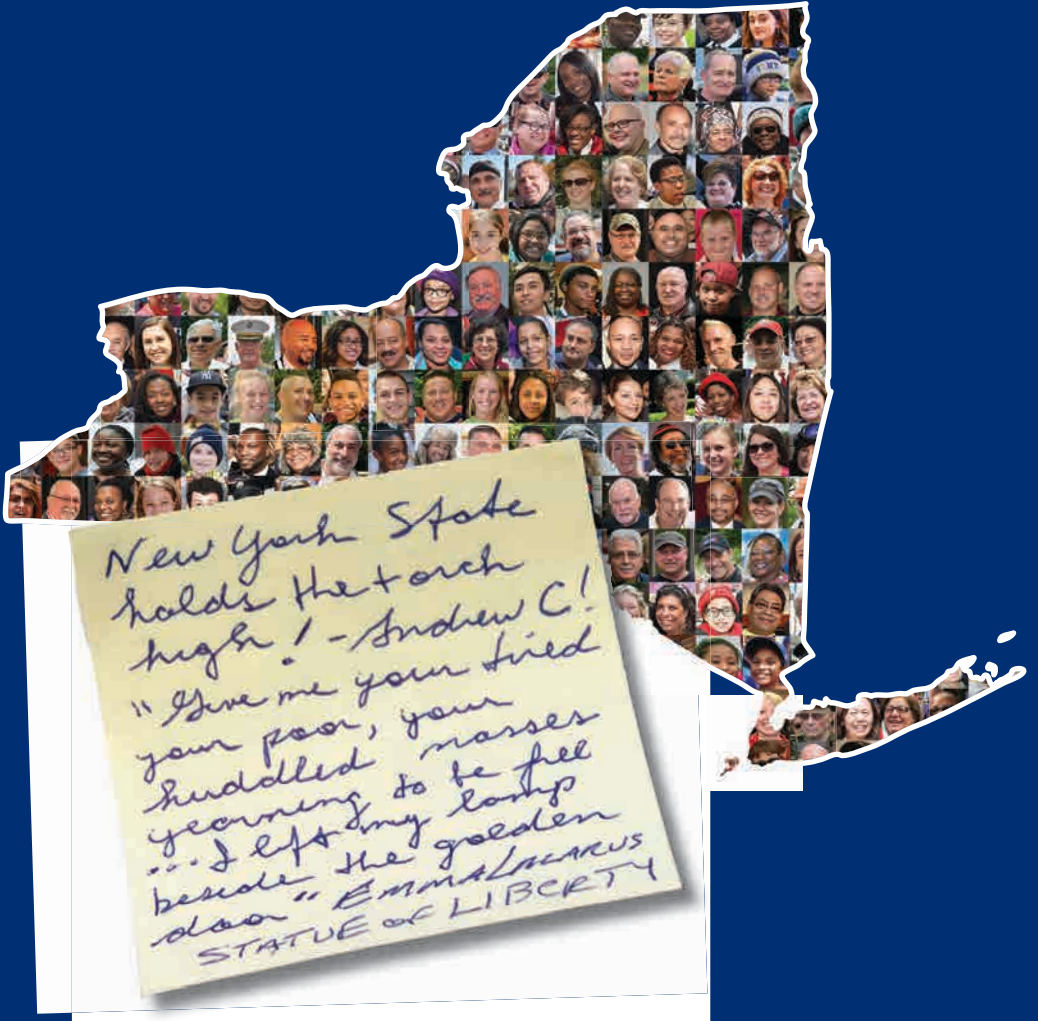 New York State
holds the torch
high! - Andrew C!
"Give me your tired
your poor, your
huddled masses
yearning to be free
... I lift my lamp
beside the golden
door" EMMA LAZARUS
STATUE OF LIBERTY